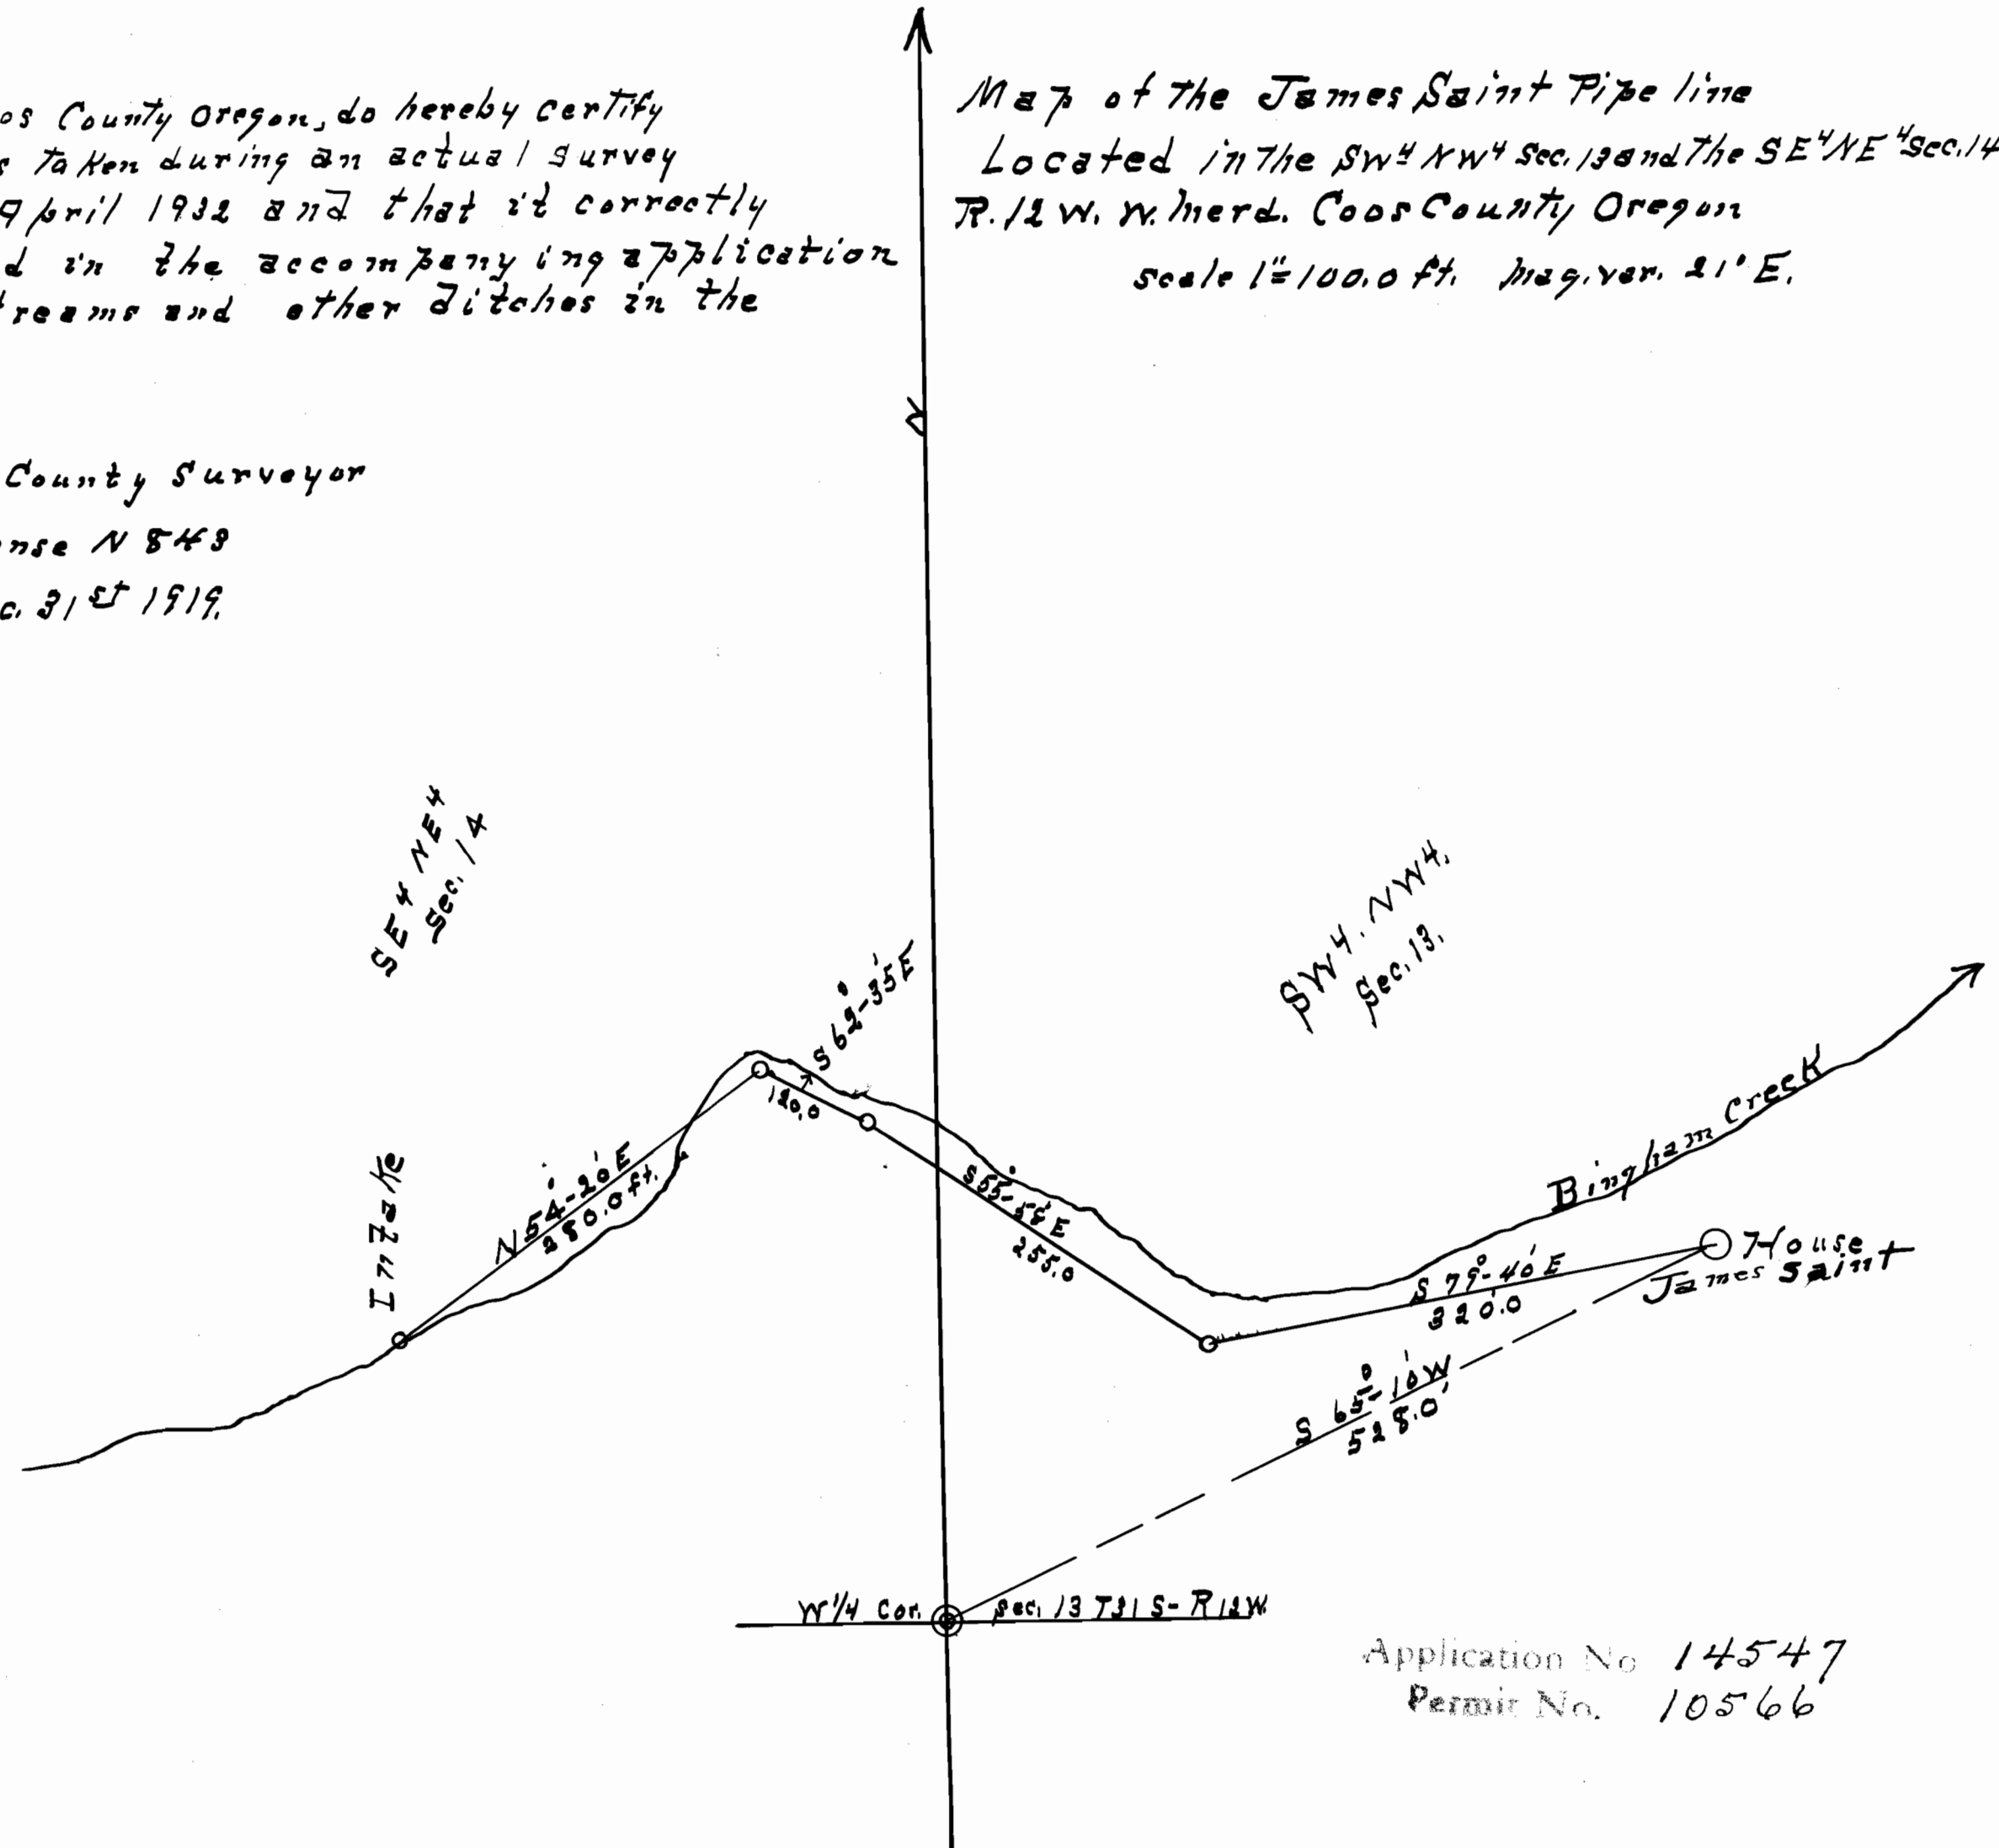 os County Oregon, do hereby certify
taken during an actual survey
April 1932 and that it correctly
d in the accompanying application
reams and other ditches in the
County Surveyor
nse N 843
c. 31st 1919.
Map of the James Saint Pipe line
Located in the SW4 NW4 Sec. 13 and the SE4 NE4 Sec. 14
R. 12 W. W. Merd. Coos County Oregon
scale 1"=100.0 ft. Mag. var. 21° E.
SE4 NE4
Sec. 14
SW4. NW4.
Sec. 13.
S 62°-35' E
120.0
Intake
N 54°-20' E
280.0 ft.
S 55°-58' E
255.0
Bingham Creek
House
James Saint
S 79°-40' E
320.0
S 65°-10' W
528.0'
W 1/4 Cor. Sec. 13 T31 S- R12W.
Application No 14547
Permit No. 10566